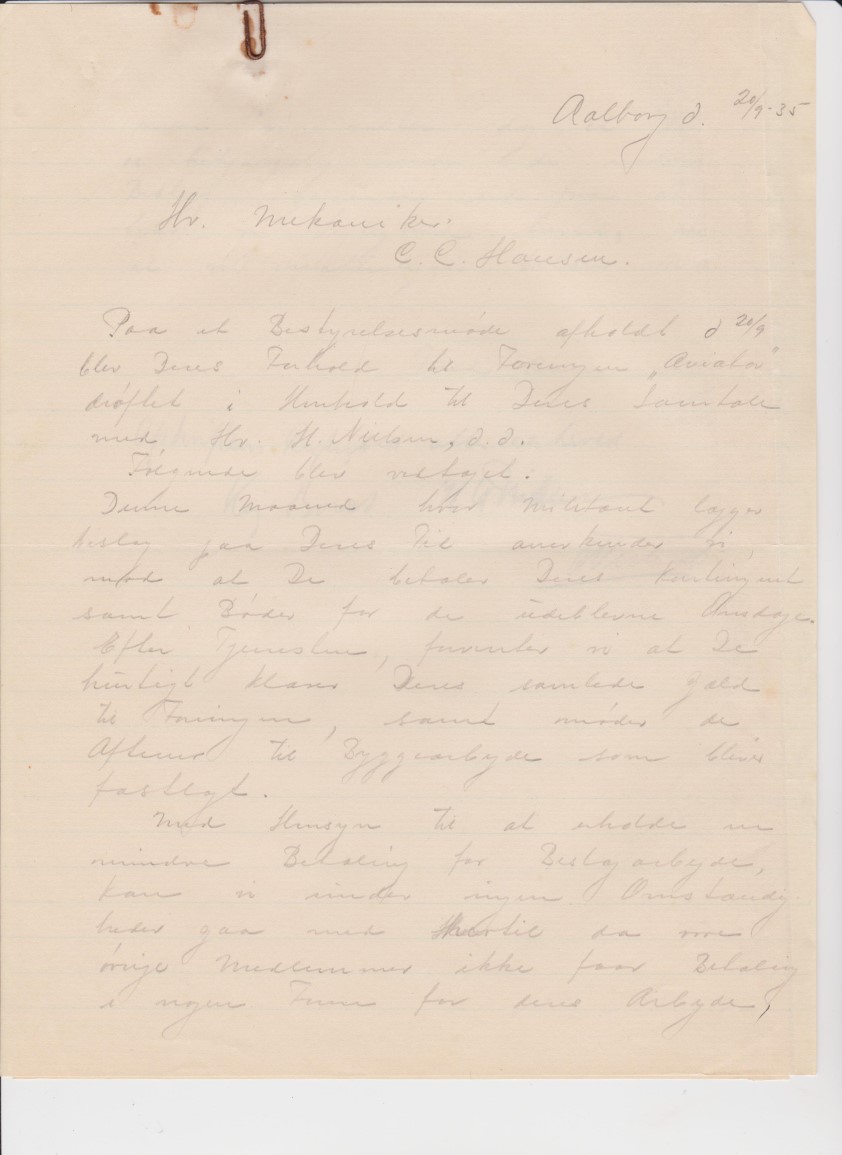 Aalborg d. 20/9-35
Hr. Mekaniker.
C. C. Hansen.
Paa et Bestyrelsesmøde afholdt d 20/9
blev Deres Forhold til Foreningen „Aviator"
drøftet i Henhold til Deres Samtale
med, Hr. H. Nielsen, d.d.
Følgende blev vedtaget.
Denne Maaned hvor Militæret lægger
beslag paa Deres Tid anerkender vi,
mod at De betaler Deres Kontingent
samt Bøder for de udeblevne Onsdage.
Efter Tjenesten, forventer vi at De
hurtigt klarer Deres samlede Gæld
til Foreningen, samt møder de
Aftener til Byggearbejde som bliver
fastlagt.
Med Hensyn til at erholde en
mindre Betaling for Beslagarbejde,
kan vi under ingen Omstændig
heder gaa med hertil da vore
øvrige Medlemmer ikke faar Betaling
i nogen Form for deres Arbejde,